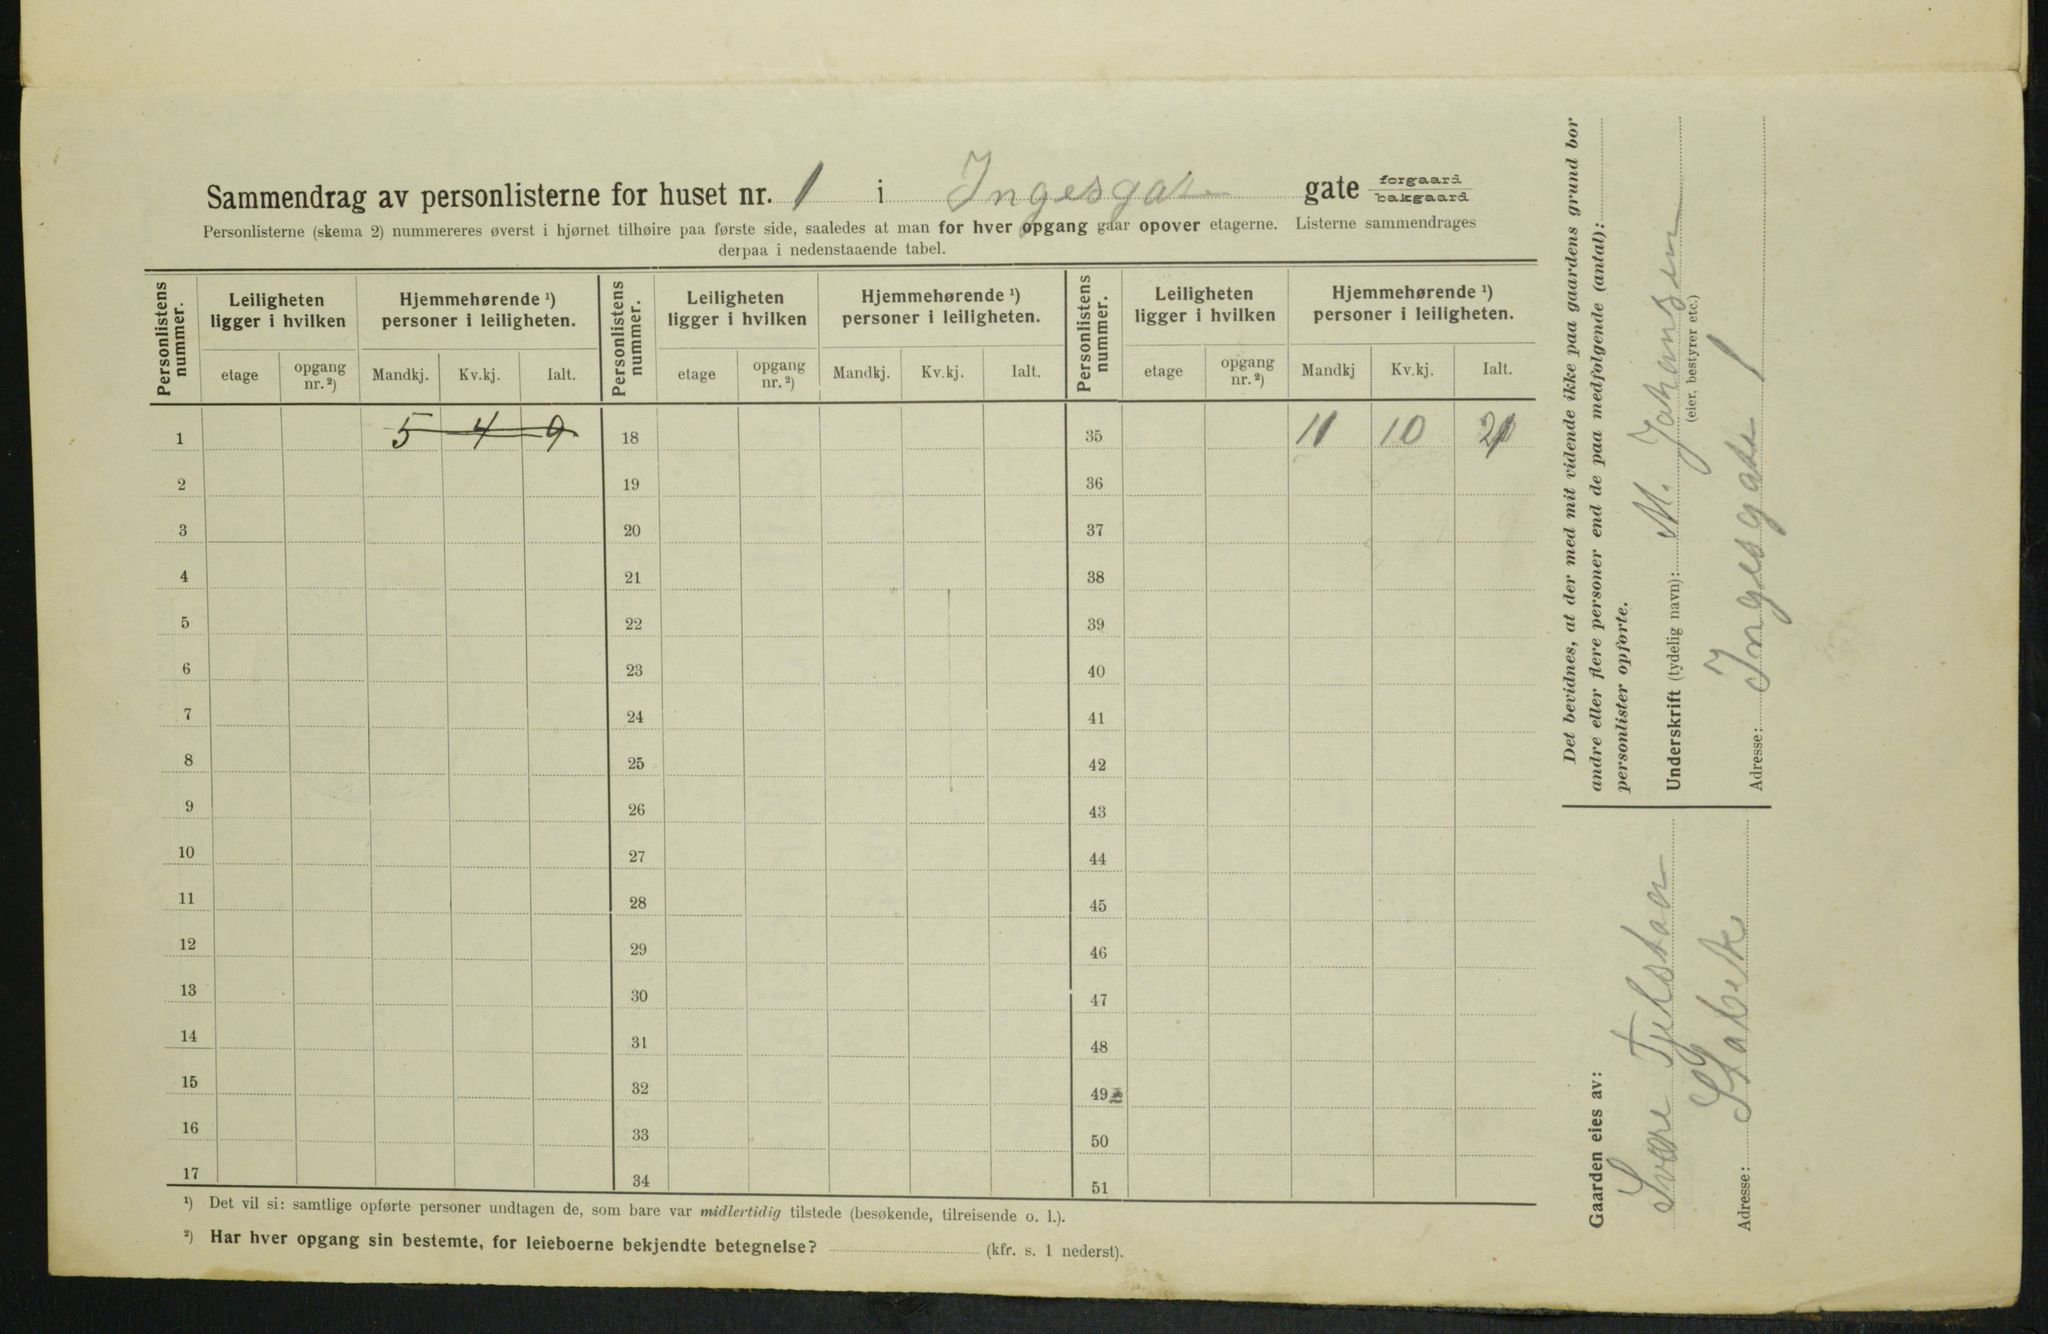 Sammendrag av personlisterne for huset nr. 1 i Ingesgate gate forgaard bakgaard
Personlisterne (skema 2) nummereres øverst i hjørnet tilhøire paa første side, saaledes at man for hver opgang gaar opover etagerne. Listerne sammendrages
derpaa i nedenstaaende tabel.
Personlistens nummer. Leiligheten ligger i hvilken Hjemmehørende ¹) personer i leiligheten. Personlistens nummer. Leiligheten ligger i hvilken Hjemmehørende ¹) personer i leiligheten. Personlistens nummer. Leiligheten ligger i hvilken Hjemmehørende ¹) personer i leiligheten.
etage opgang nr. ²) Mandkj. Kv.kj. Ialt. etage opgang nr. ²) Mandkj. Kv.kj. Ialt. etage opgang nr. ²) Mandkj Kv.kj. Ialt.
1 5 4 9 18 35 11 10 21
2 19 36
3 20 37
4 21 38
5 22 39
6 23 40
7 24 41
8 25 42
9 26 43
10 27 44
11 28 45
12 29 46
13 30 47
14 31 48
15 32 49
16 33 50
17 34 51
¹) Det vil si: samtlige opførte personer undtagen de, som bare var midlertidig tilstede (besøkende, tilreisende o. l.).
²) Har hver opgang sin bestemte, for leieboerne bekjendte betegnelse? (kfr. s. 1 nederst).
Det bevidnes, at der med mit vidende ikke paa gaardens grund bor
andre eller flere personer end de paa medfølgende (antal):
personlister opførte.
Underskrift (tydelig navn): M. Johansen
(eier, bestyrer etc.)
Adresse: Ingesgate 1
Gaarden eies av:
Adresse: Stabekk